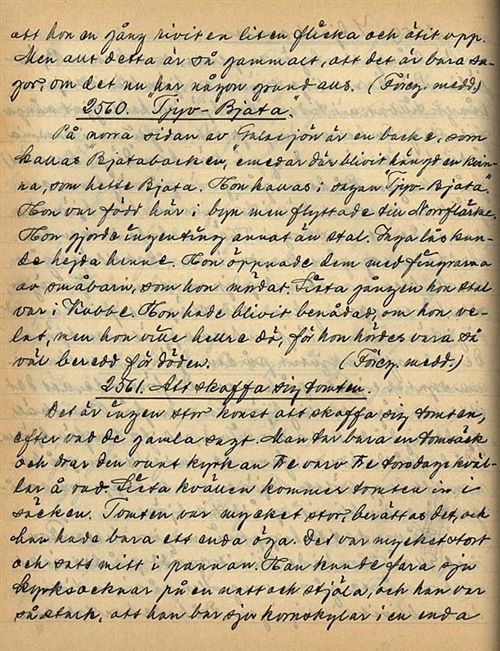 att hon en gång rivit en liten flicka och ätit upp.
Men allt detta är så gammalt, att det är bara sa-
gor, om det nu har någon grund alls. (Föreg. medd.)
2560. "Tjyv-Bjata".
På norra sidan av Galasjön är en backe, som
kallas "Bjatabacken", emedan där blivit hängd en kvin-
na, som hette Bjata. Hon kallas i sagan "Tjyv-Bjata".
Hon var född här i byn men flyttade till Norrflärke.
Hon gjorde ingenting annat än stal. Inga lås kun-
de hejda henne. Hon öppnade dem med fingrarna
av småbarn, som hon mördat. Sista gången hon stal
var i Kubbe. Hon hade blivit benådad, om hon ve-
lat, men hon ville hellre dö, för hon hördes vara så
väl beredd för döden. (Föreg. medd.)
2561. Att skaffa sig tomten.
Det är ingen stor konst att skaffa sig tomten,
efter vad de gamla sagt. Man tar bara en tomsäck
och drar den runt kyrkan tre varv tre torsdagskväl-
lar å rad. Sista kvällen kommer tomten in i
säcken. Tomten var mycket stor, berättas det, och
han hade bara ett enda öga. Det var mycket stort
och satt mitt i pannan. Han kunde fara sju
kyrksocknar på en natt och stjäla, och han var
så stark, att han bar sju kornskylar i en enda